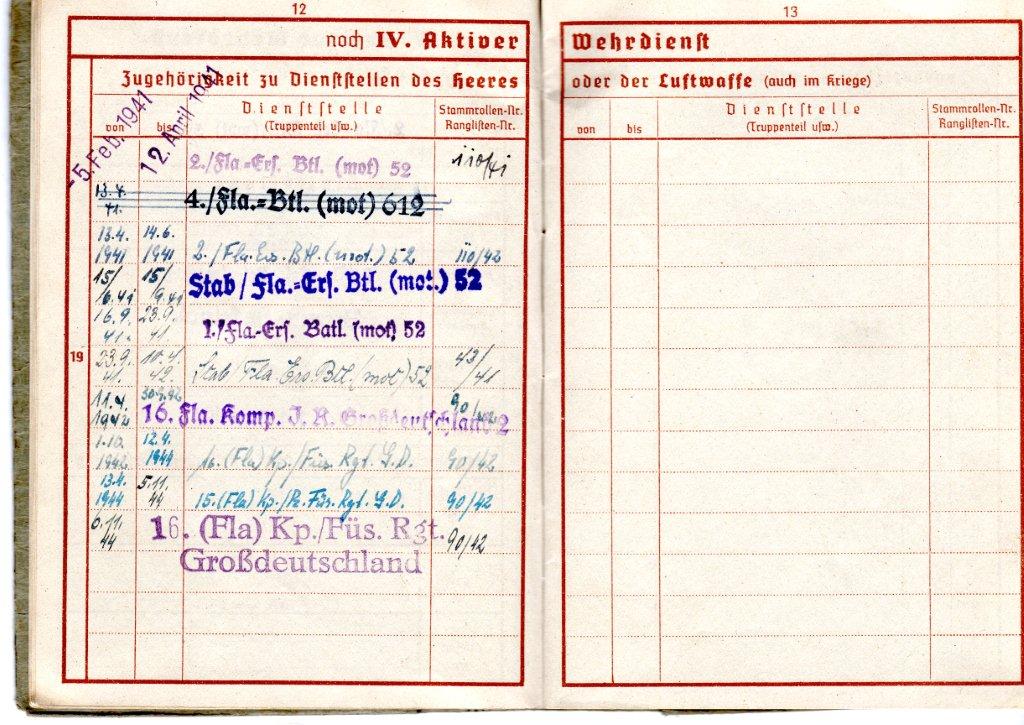 12
noch IV. Aktiver
Zugehörigkeit zu Dienststellen des Heeres
von
bis
Dienststelle
(Truppenteil usw.)
Stammrollen-Nr.
Ranglisten-Nr.
-5. Feb. 1941
12. April 1941
2./Fla-Ers. Btl. (mot) 52
110/41
13.4.
41.
4./Fla.-Btl. (mot) 612
13.4.
1941
14.6.
1941
2./Fla.Ers.Btl.(mot.) 52
110/42
15/
6.41
15/
9.41
Stab/Fla.-Ers. Btl. (mot.) 52
16.9.
41.
23.9.
41.
1./Fla-Ers. Batl. (mot) 52
19
23.9.
41.
10.4.
42.
Stab Fla.Ers.Btl.(mot) 52
43/
41
11.4.
1942
30.9.42
16. Fla. Komp. J. R. Großdeutschland 2
90/42
1.10.
1942
12.4.
1944
16.(Fla)Kp./Füs. Rgt. G.D.
90/42
13.4.
1944
5.11.
44
15.(Fla)Kp./Pz.Füs.Rgt. G.D.
90/42
6.11.
44
16. (Fla) Kp./Füs. Rgt.
Großdeutschland
90/42
13
Wehrdienst
oder der Luftwaffe (auch im Kriege)
von
bis
Dienststelle
(Truppenteil usw.)
Stammrollen-Nr.
Ranglisten-Nr.